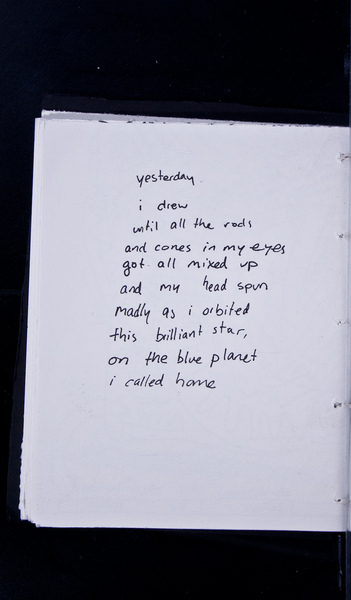 yesterday.
i drew
until all the rods
and cones in my eyes
got all mixed up
and my head spun
madly as i orbited
this brilliant star,
on the blue planet
i called home